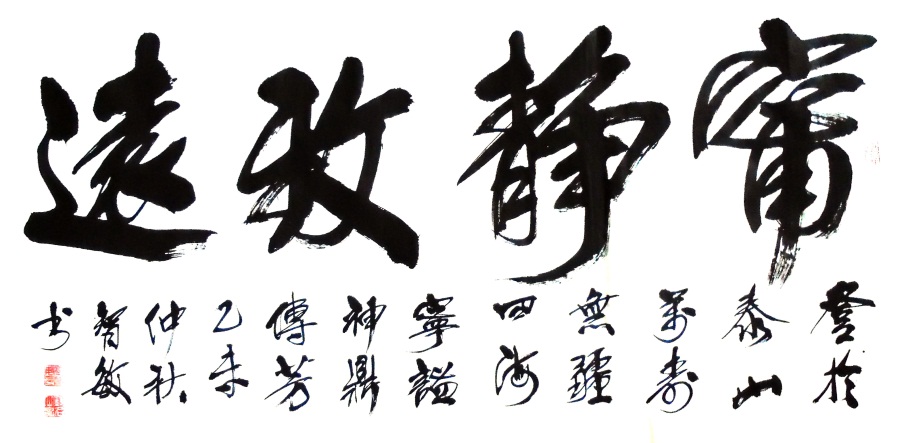 甯静致遠
登於
泰山
萬壽
無疆
四海
寧謐
神鼎
傳芳
乙未
仲秋
智敏
书